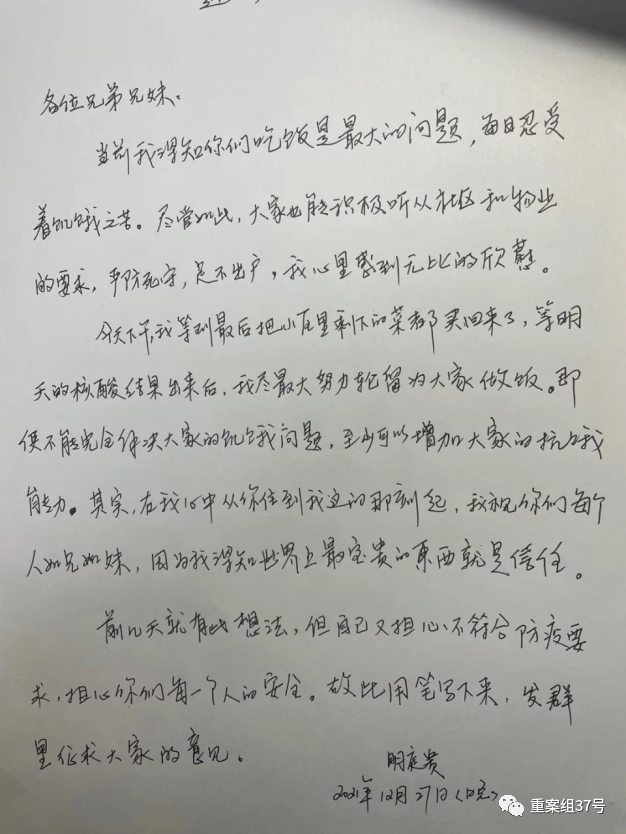 各位兄弟兄妹:
当前我得知你们吃饭是最大的问题,每日忍受
着饥饿之苦。尽管如此,大家也能积极听从社区和物业
的要求,严防死守,足不出户,我心里感到无比的欣慰。
今天下午,我等到最后把小店里剩下的菜都买回来了,等明
天的核酸结果出来后,我尽最大努力轮留为大家做饭。即
使不能完全解决大家的饥饿问题,至少可以增加大家的抗饿
能力。其实,在我心中从你住到我这的那刻起,我视你们每个
人如兄如妹,因为我得知世界上最宝贵的東西就是信任。
前几天就有此想法,但自己又担心不符合防疫要
求,担心你们每一个人的安全。故此用笔写下来,发群
里征求大家的意见。
明庭贵
2021年12月27日(晚)
重案组37号